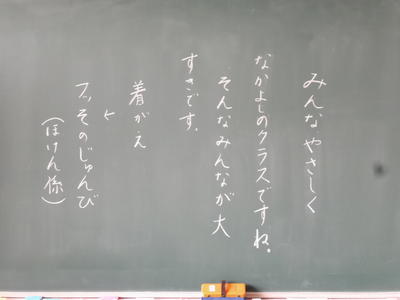 みんなやさしく
なかよしのクラスですね。
そんなみんなが大
すきです。
着がえ
←
フッそのじゅんび
(ほけん係)